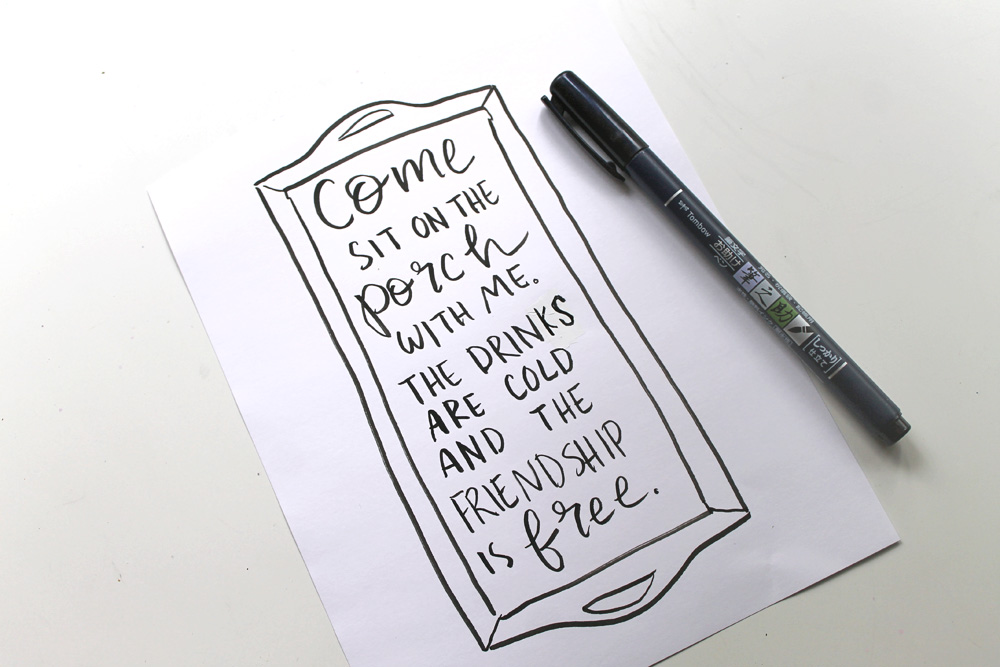 Come
SIT ON THE
porch
WITH ME.
THE DRINKS
ARE COLD
AND THE
FRIENDSHIP
IS free.
Tombow
お助け
ペン
筆之助
しっかり
仕立て